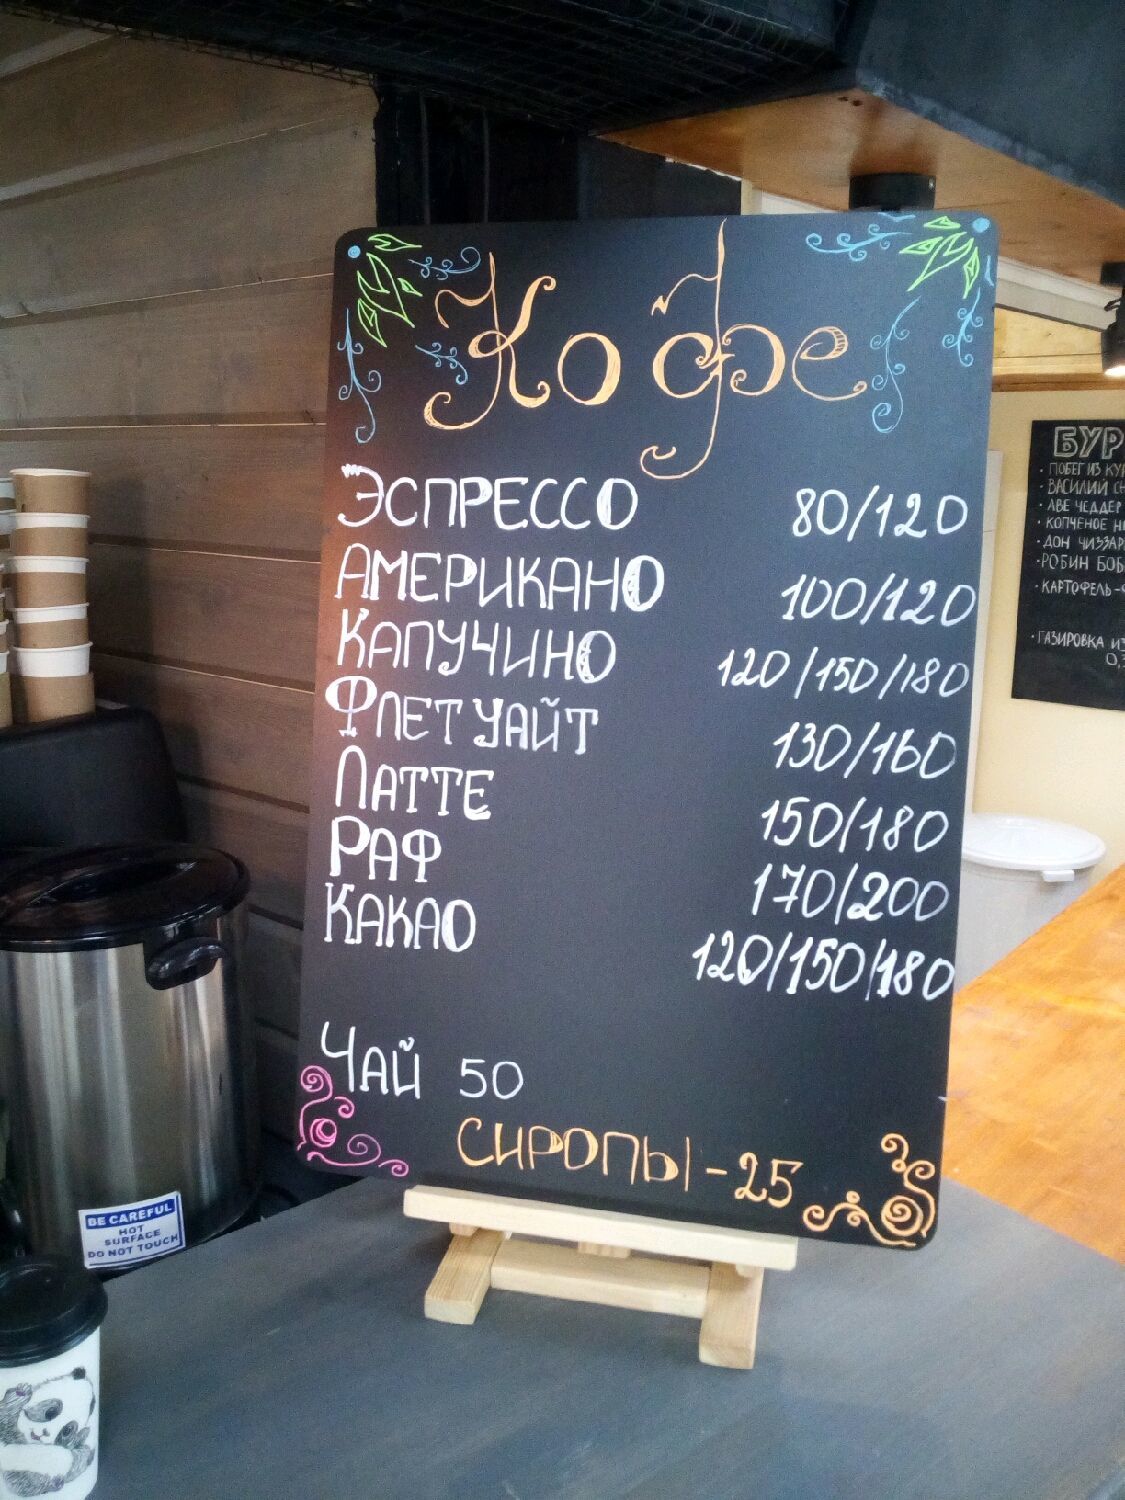 Кофе
ЭСПРЕССО 80/120
АМЕРИКАНО 100/120
КАПУЧИНО 120/150/180
ФЛЕТ УАЙТ 130/160
ЛАТТЕ 150/180
РАФ 170/200
КАКАО 120/150/180
ЧАЙ 50
СИРОПЫ - 25
BE CAREFUL
HOT
SURFACE
DO NOT TOUCH
БУР
· ПОБЕГ ИЗ КУР
· ВАСИЛИЙ СН
· АВЕ ЧЕДДЕР
· КОПЧЕНОЕ Н
· ДОН ЧИЗЗАР
· РОБИН БОБ
· КАРТОФЕЛЬ-Ф
· ГАЗИРОВКА ИЗ
0,3